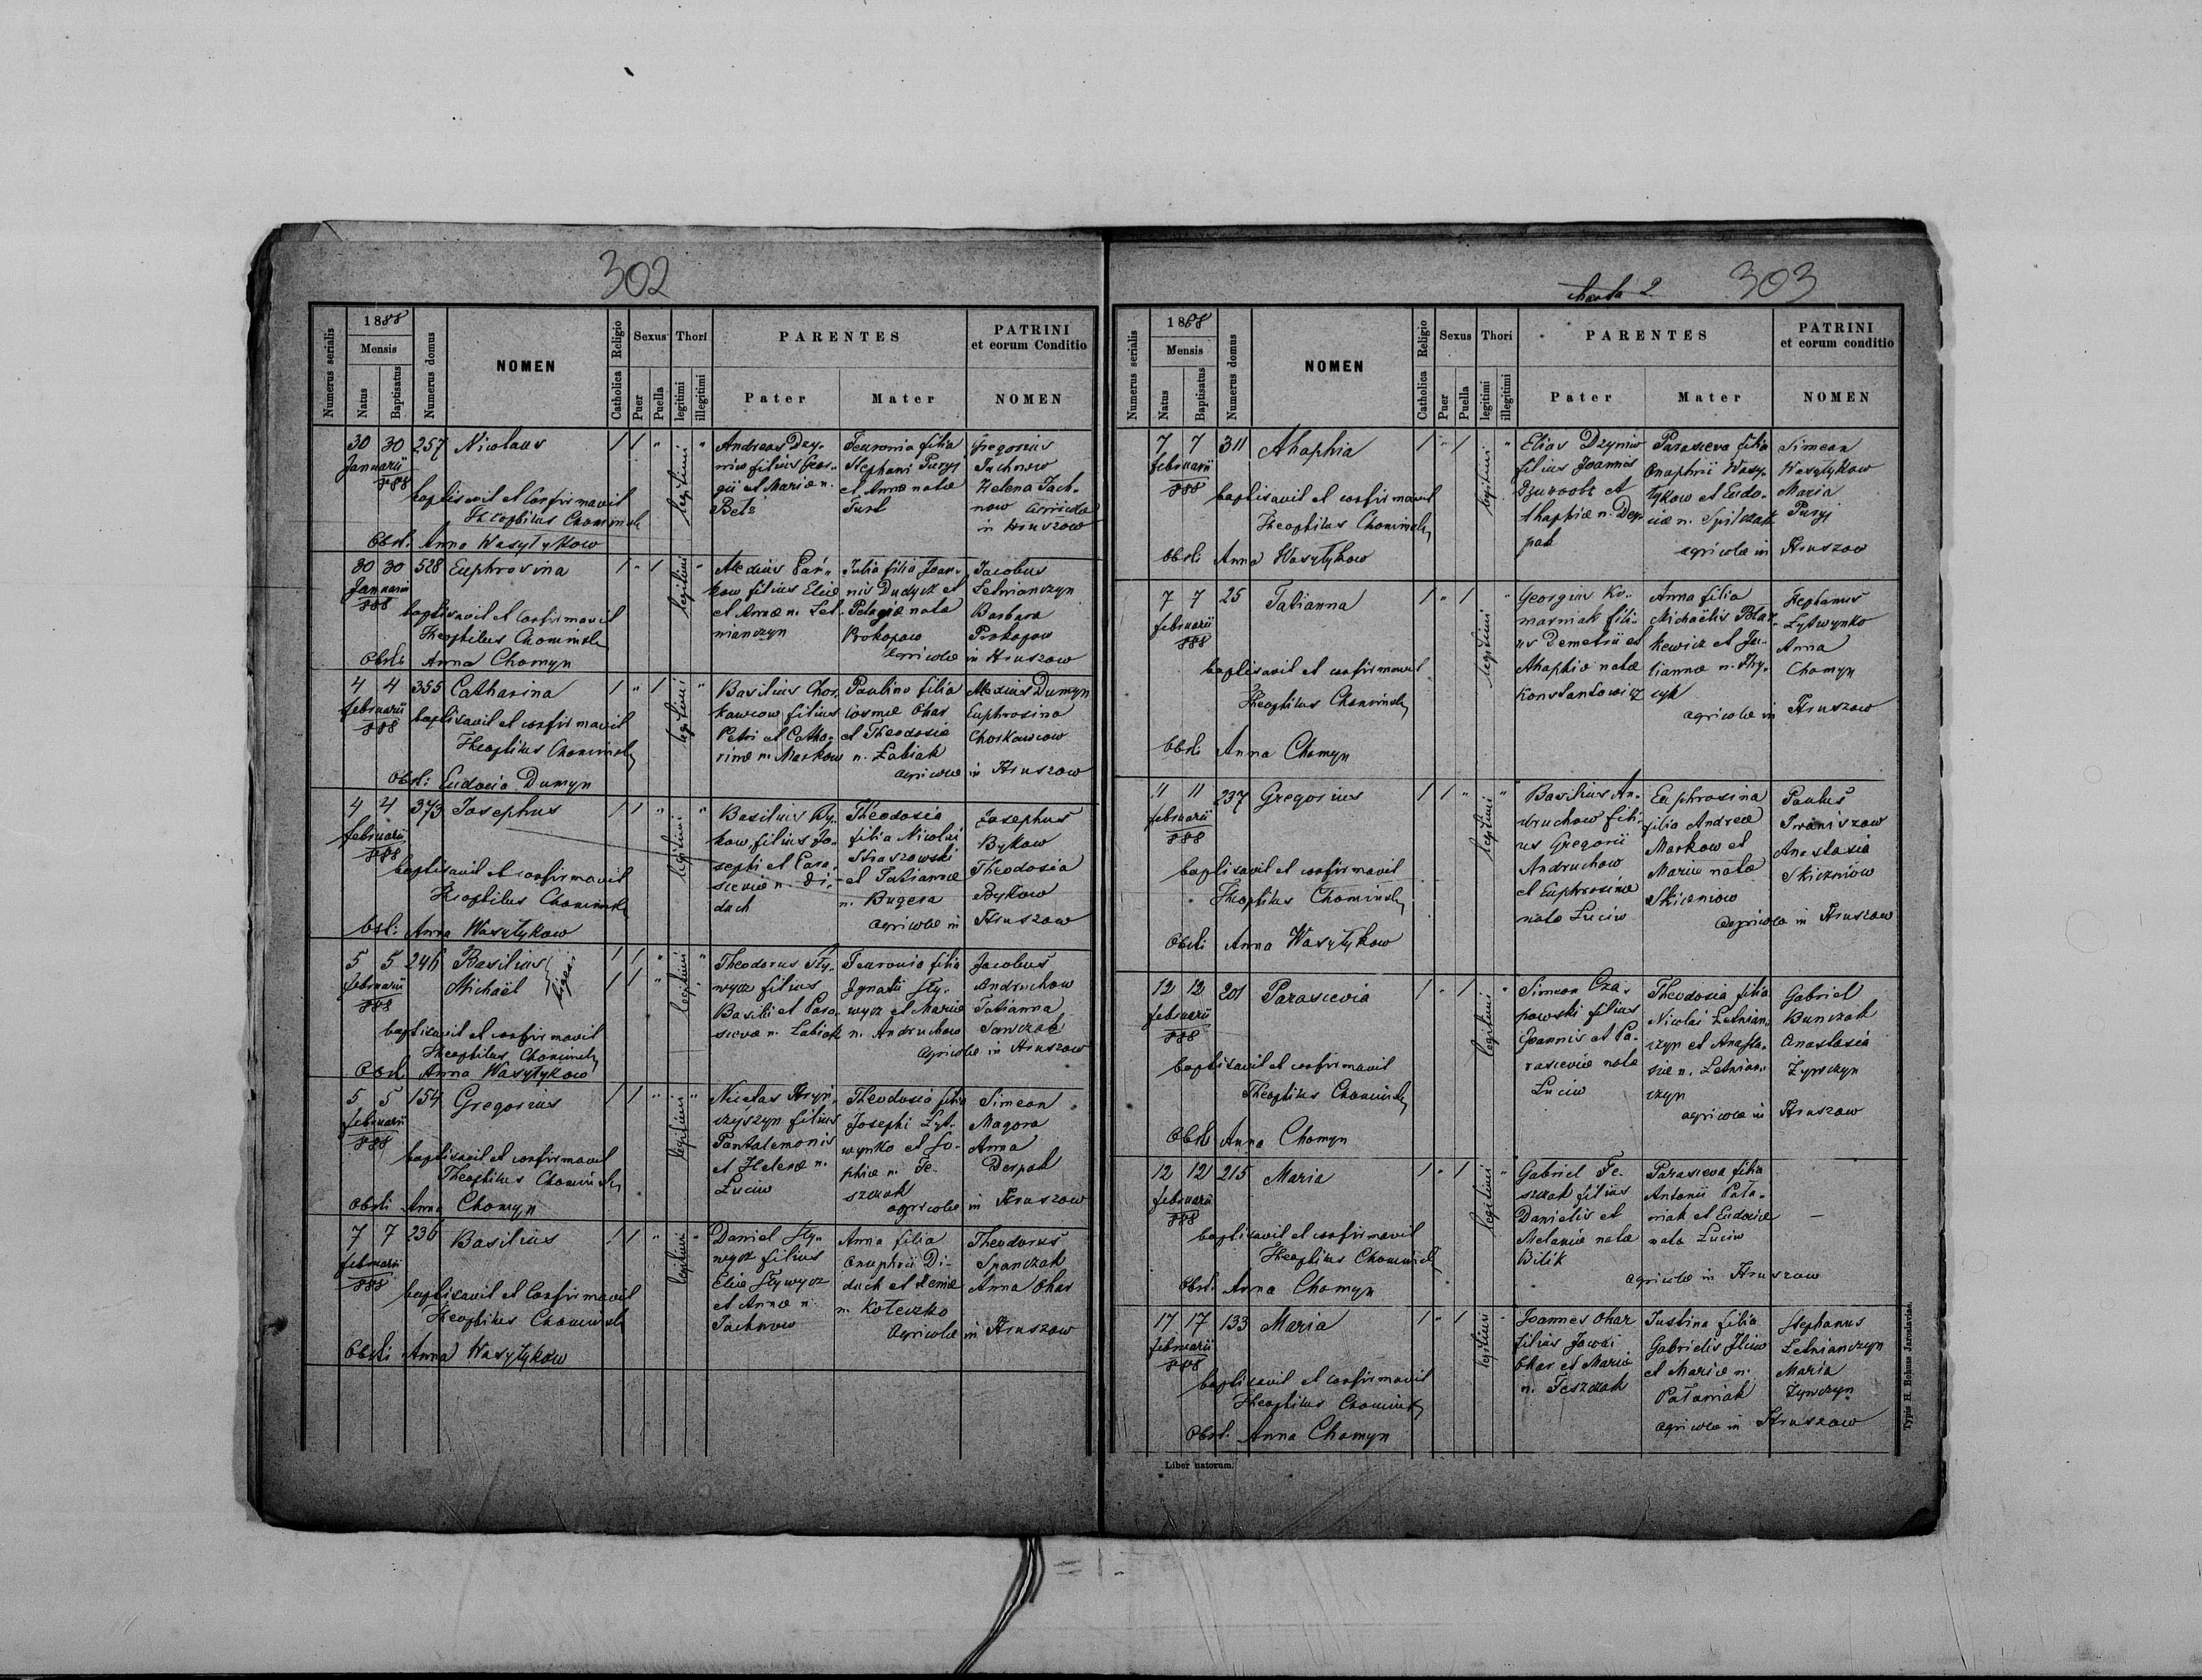 302
Numerus serialis
1888
Mensis
Natus
Baptisatus
Numerus domus
NOMEN
Religio
Catholica
Sexus
Puer
Puella
Thori
legitimi
illegitimi
PARENTES
Pater
Mater
PATRINI
et eorum Conditio
NOMEN
30 30 257 Nicolaus
Januarii
888
baptisavit et Confirmavit
Theophilus Chominski
Obst: Anna Wasyłykow
legitimi
Andreas Dzy-
niw filius Geor-
gii et Mariæ n.
Betz
Feuronia filia
Stephani Puryj
et Annæ natæ
Turk
Gregorius
Jachnow
Helena Jach-
now agricolæ
in Hruszow
30 30 528 Euphrosina
Januarii
888
baptisavit et Confirmavit
Theophilus Chominski
Obst: Anna Chomyn
legitimi
Alexius Pań-
kow filius Eliæ
et Annæ n. Let-
nianczyn
Julia filia Joan-
nis Dudycz et
Pelagiæ nata
Prokopow
Jacobus
Letnianczyn
Barbara
Prokopow
agricolæ in Hruszow
4 4 355 Catharina
februarii
888
baptisavit et confirmavit
Theophilus Chominski
Obst: Eudocia Dumyn
legitimi
Basilius Chor-
kawcow filius
Petri et Catha-
rinæ n. Markow
Paulina filia
Cosmæ Ohar
et Theodosia
n. Łabiak
Alexius Dumyn
Euphrosina
Chorkawcow
agricolæ in Hruszow
4 4 373 Josephus
februarii
888
baptisavit et confirmavit
Theophilus Chominski
Obst: Anna Wasyłykow
legitimi
Basilius By-
kow, filius Jo-
sephi et Para-
sceviæ n. Di-
duch
Theodosia
filia Nicolai
Straszowski
et Tatiannæ
n. Bugera
Josephus
Bykow
Theodosia
Bykow
agricolæ in Hruszow
5 5 246 Basilius
Michaël
februarii
888
baptisavit et confirmavit
Theophilus Chominski
Obst. Anna Wasyłykow
legitimi
Theodorus Sty-
wycz filius
Basilii et Para-
sceva n. Łabiak
Feuronia filia
Ignatii Sty-
wycz et Mariæ
n. Andruchow
Jacobus
Andruchow
Tatianna
Senczak
agricolæ in Hruszow
5 5 154 Gregorius
februarii
888
baptisavit et confirmavit
Theophilus Chominski
Obst: Anna Chomyn
legitimi
Nicetas Hryn-
szyszyn filius
Pantalemonis
et Helenæ n.
Łuciw
Theodosia filia
Josephi Łyt-
wynko et So-
phiæ n. Te-
szczak
Simeon
Magora
Anna
Derpak
agricolæ in Hruszow
7 7 236 Basilius
februarii
888
baptisavit et Confirmavit
Theophilus Chominski
Obst: Anna Wasyłykow
legitimi
Daniel Sty-
wycz filius
Eliæ Stywycz
et Annæ n.
Jachnow
Anna filia
Onuphrii Di-
duch et Xeniæ
n. Koteczko
Theodorus
Spanczak
Anna Ohar
agricolæ in Hruszow
303
Numerus serialis
1888
Mensis
Natus
Baptisatus
Numerus domus
NOMEN
Religio
Catholica
Sexus
Puer
Puella
Thori
legitimi
illegitimi
PARENTES
Pater
Mater
PATRINI
et eorum conditio
NOMEN
7 7 311 Ahaphia
februarii
888
baptisavit et confirmavit
Theophilus Chominski
Obst: Anna Wasyłykow
legitimi
Elias Dzyniw
filius Joannis
et
Ahaphiæ n. Der-
pak
Parasceva filia
Onuphrii Wasy-
łykow et Eudo-
ciæ n. Spilczak
Simeon
Wasyłykow
Maria
Puryj
agricolæ in Hruszow
7 7 25 Tatianna
februarii
888
baptisavit et confirmavit
Theophilus Chominski
Obst: Anna Chomyn
legitimi
Georgius Ko-
marniak fili-
us Demetrii et
Ahaphiæ natæ
Konstantowicz
Anna filia
Michaëlis
kewicz et Ju-
liannæ n. Hry-
cyk
Stephanus
Łytwynko
Anna
Chomyn
agricolæ in Hruszow
11 11 237 Gregorius
februarii
888
baptisavit et confirmavit
Theophilus Chominski
Obst: Anna Wasyłykow
legitimi
Basilius An-
druchow fili-
us Gregorii
Andruchow
et Euphrosinæ
nata Łuciw
Euphrosina
filia Andreæ
Markow et
Mariæ natæ
Skiczniow
Paulus
Iwaniszow
Anastasia
Skiczniow
agricolæ in Hruszow
12 12 201 Parascevia
februarii
888
baptisavit et confirmavit
Theophilus Chominski
Obst: Anna Chomyn
legitimi
Simeon Cza-
powski filius
Joannis et Pa-
rasceviæ nata
Łuciw
Theodosia filia
Nicolai Letnian-
czyn et Anasta-
siæ n. Letnian-
czyn
Gabriel
Bunczak
Anastasia
Zynczyn
agricolæ in Hruszow
12 12 215 Maria
februarii
888
baptisavit et confirmavit
Theophilus Chominski
Obst. Anna Chomyn
legitimi
Gabriel Te-
szczak filius
Danielis et
Melaniæ natæ
Bilik
Parasceva filia
Antonii Pała-
niak et Eudociæ
nata Łuciw
—
agricolæ in Hruszow
17 17 133 Maria
februarii
888
baptisavit et confirmavit
Theophilus Chominski
Obst. Anna Chomyn
legitimi
Joannes Ohar
filius
Ohar et Maria
n. Teszczak
Justina filia
Gabrielis Iliiw
et Mariæ n.
Pałaniak
Stephanus
Letnianczyn
Maria
Zynczyn
agricolæ in Hruszow
Liber natorum.
Typis H. Bohuss Jaroslaviae.